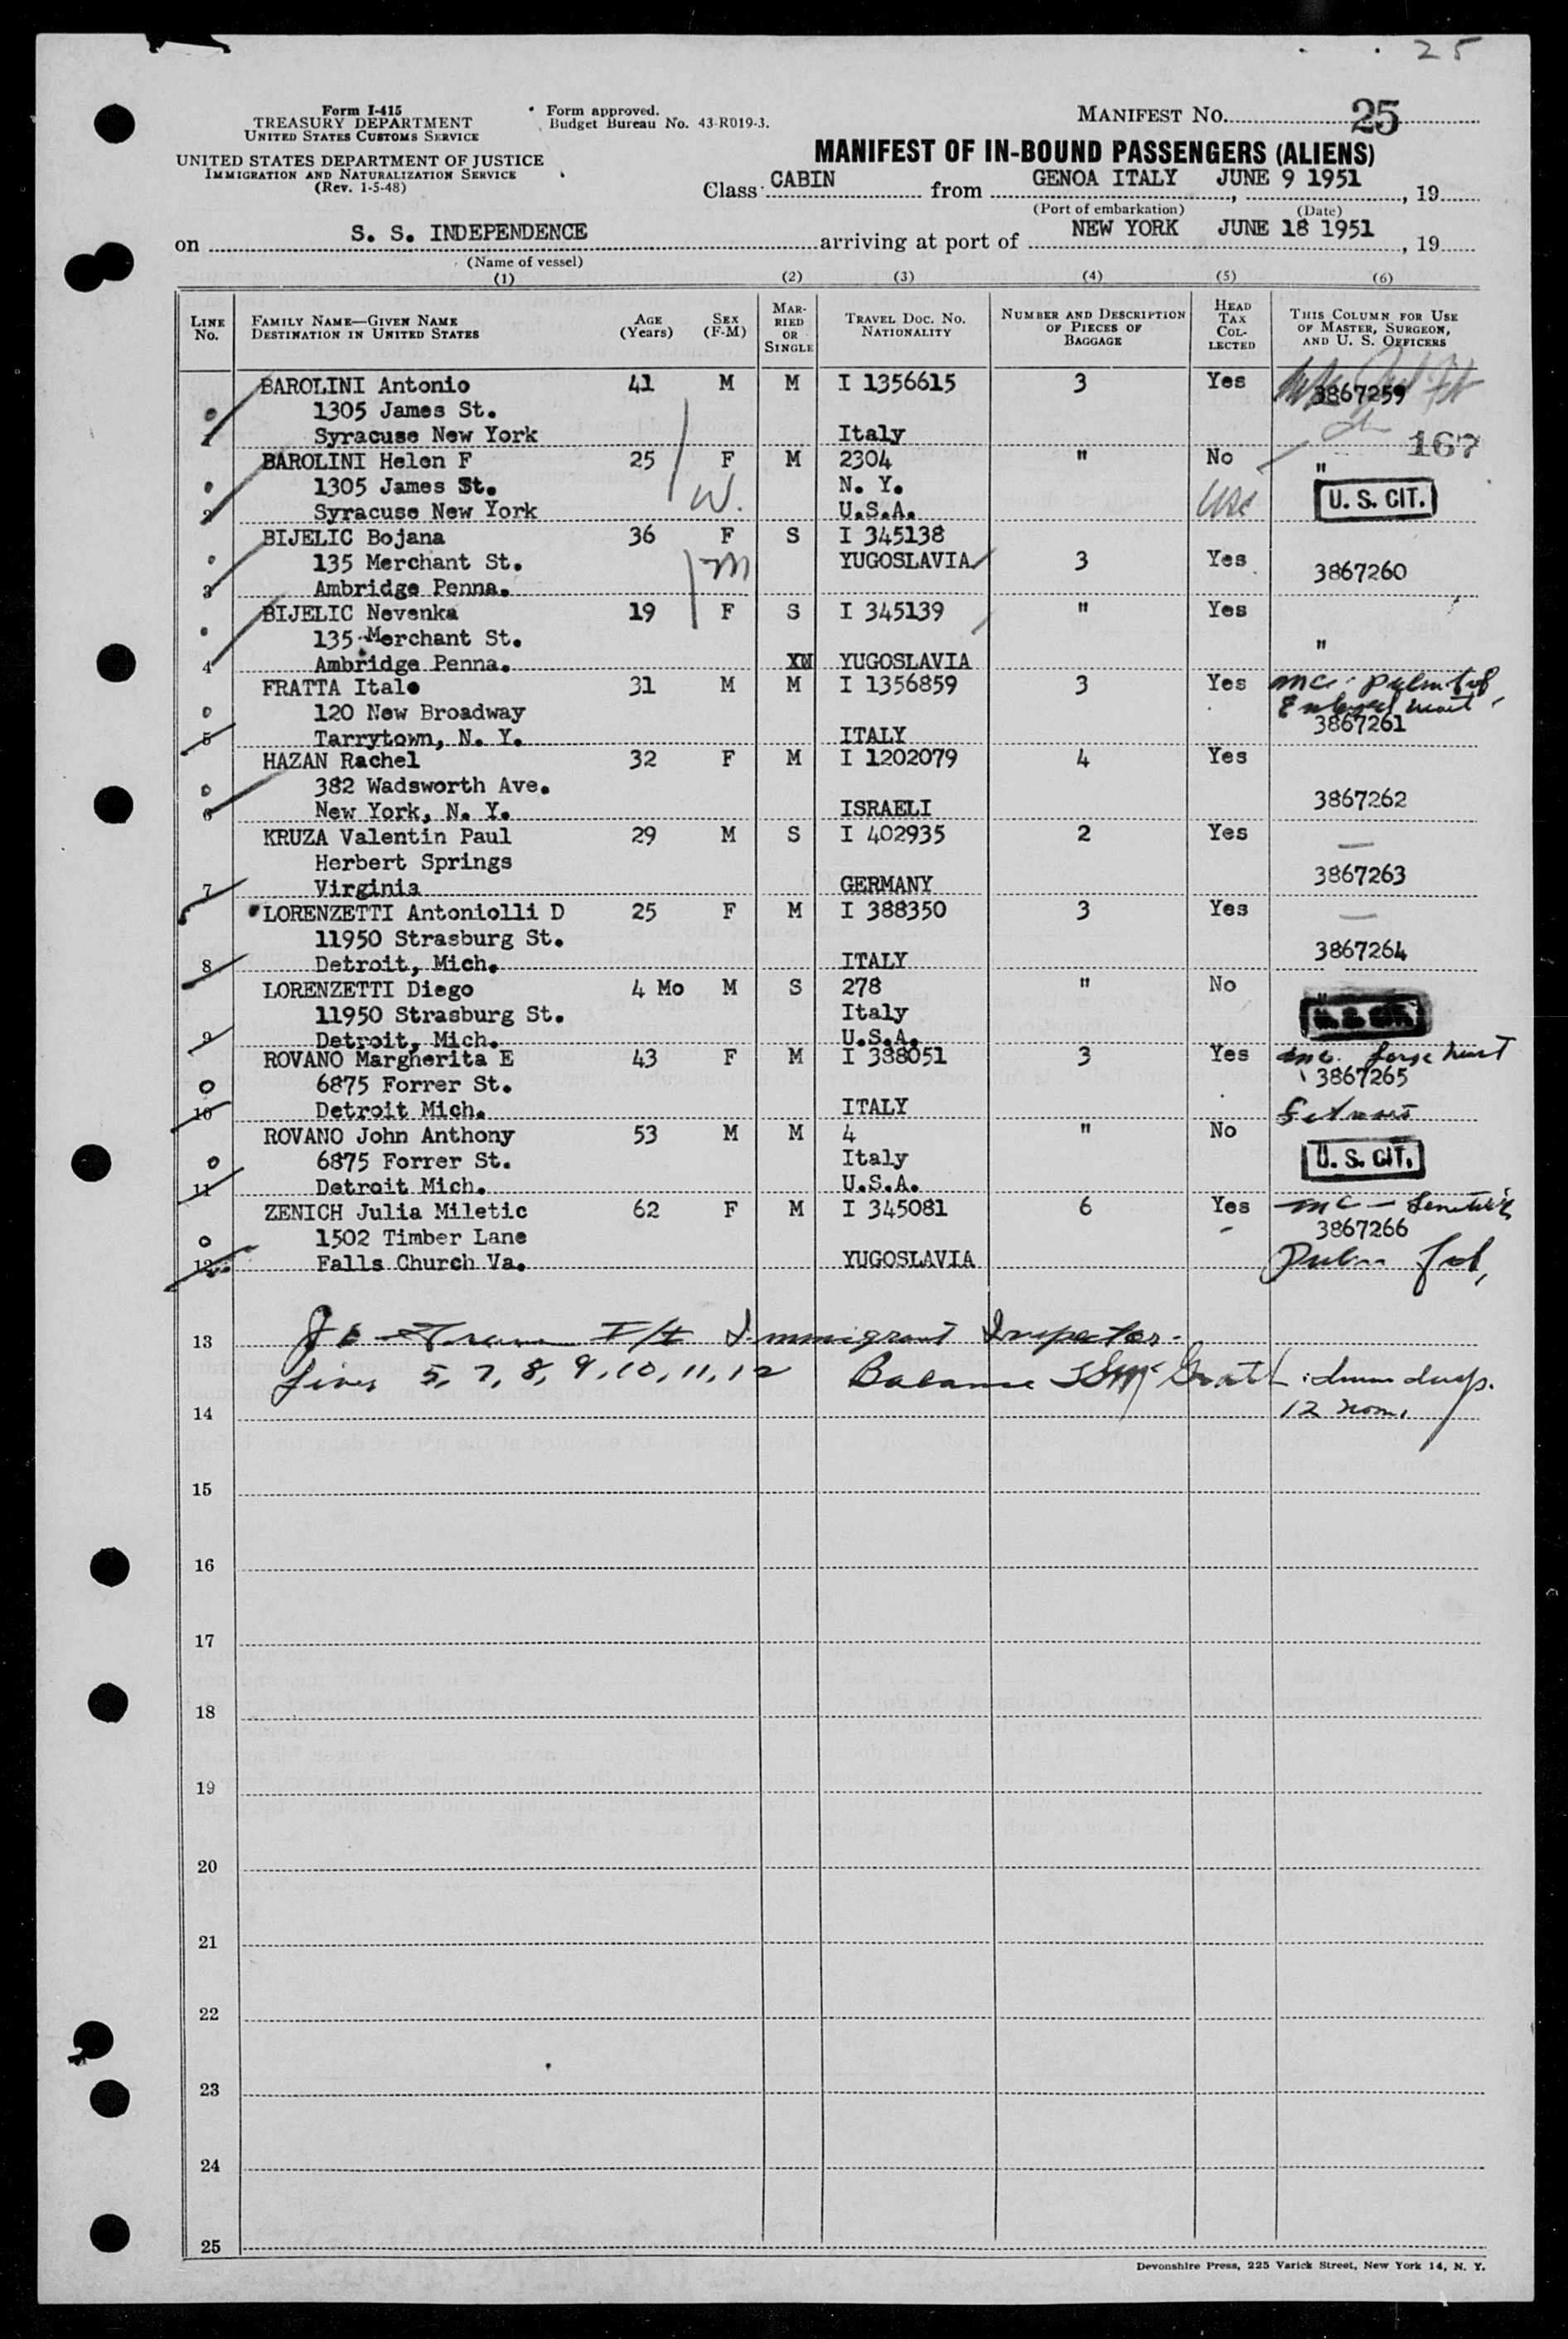 25
Form I-415
TREASURY DEPARTMENT
UNITED STATES CUSTOMS SERVICE
UNITED STATES DEPARTMENT OF JUSTICE
IMMIGRATION AND NATURALIZATION SERVICE
(Rev. 1-5-48)
Form approved.
Budget Bureau No. 43-R019-3.
MANIFEST No. 25
MANIFEST OF IN-BOUND PASSENGERS (ALIENS)
Class CABIN from GENOA ITALY, JUNE 9 1951, 19
(Port of embarkation) (Date)
on S. S. INDEPENDENCE arriving at port of NEW YORK JUNE 18 1951, 19
(Name of vessel)
(1) (2) (3) (4) (5) (6)
LINE No. FAMILY NAME—GIVEN NAME DESTINATION IN UNITED STATES AGE (Years) SEX (F-M) MARRIED OR SINGLE TRAVEL DOC. No. NATIONALITY NUMBER AND DESCRIPTION OF PIECES OF BAGGAGE HEAD TAX COLLECTED THIS COLUMN FOR USE OF MASTER, SURGEON, AND U. S. OFFICERS
BAROLINI Antonio 41 M M I 1356615 3 Yes 3867259
1305 James St.
1 Syracuse New York Italy 167
BAROLINI Helen F 25 F M 2304 " No "
1305 James St. W. N. Y. USC U. S. CIT.
2 Syracuse New York U.S.A.
BIJELIC Bojana 36 F S I 345138
135 Merchant St. m YUGOSLAVIA 3 Yes 3867260
3 Ambridge Penna.
BIJELIC Nevenka 19 F S I 345139 " Yes
135 Merchant St. "
4 Ambridge Penna. XM YUGOSLAVIA
FRATTA Italo 31 M M I 1356859 3 Yes mc
120 New Broadway 3867261
5 Tarrytown, N. Y. ITALY
HAZAN Rachel 32 F M I 1202079 4 Yes
382 Wadsworth Ave. 3867262
6 New York, N. Y. ISRAELI
KRUZA Valentin Paul 29 M S I 402935 2 Yes
Herbert Springs 3867263
7 Virginia GERMANY
LORENZETTI Antoniolli D 25 F M I 388350 3 Yes
11950 Strasburg St. 3867264
8 Detroit, Mich. ITALY
LORENZETTI Diego 4 Mo M S 278 " No "
11950 Strasburg St. Italy
9 Detroit, Mich. U.S.A.
ROVANO Margherita E 43 F M I 388051 3 Yes mc. large heart
6875 Forrer St. 3867265
10 Detroit Mich. ITALY
ROVANO John Anthony 53 M M 4 " No
6875 Forrer St. Italy U. S. CIT.
11 Detroit Mich. U.S.A.
ZENICH Julia Miletic 62 F M I 345081 6 Yes mc
1502 Timber Lane 3867266
12 Falls Church Va. YUGOSLAVIA
13 Immigrant Inspector.
lines 5, 7, 8, 9, 10, 11, 12 Balance
14 12
15
16
17
18
19
20
21
22
23
24
25
Devonshire Press, 225 Varick Street, New York 14, N. Y.